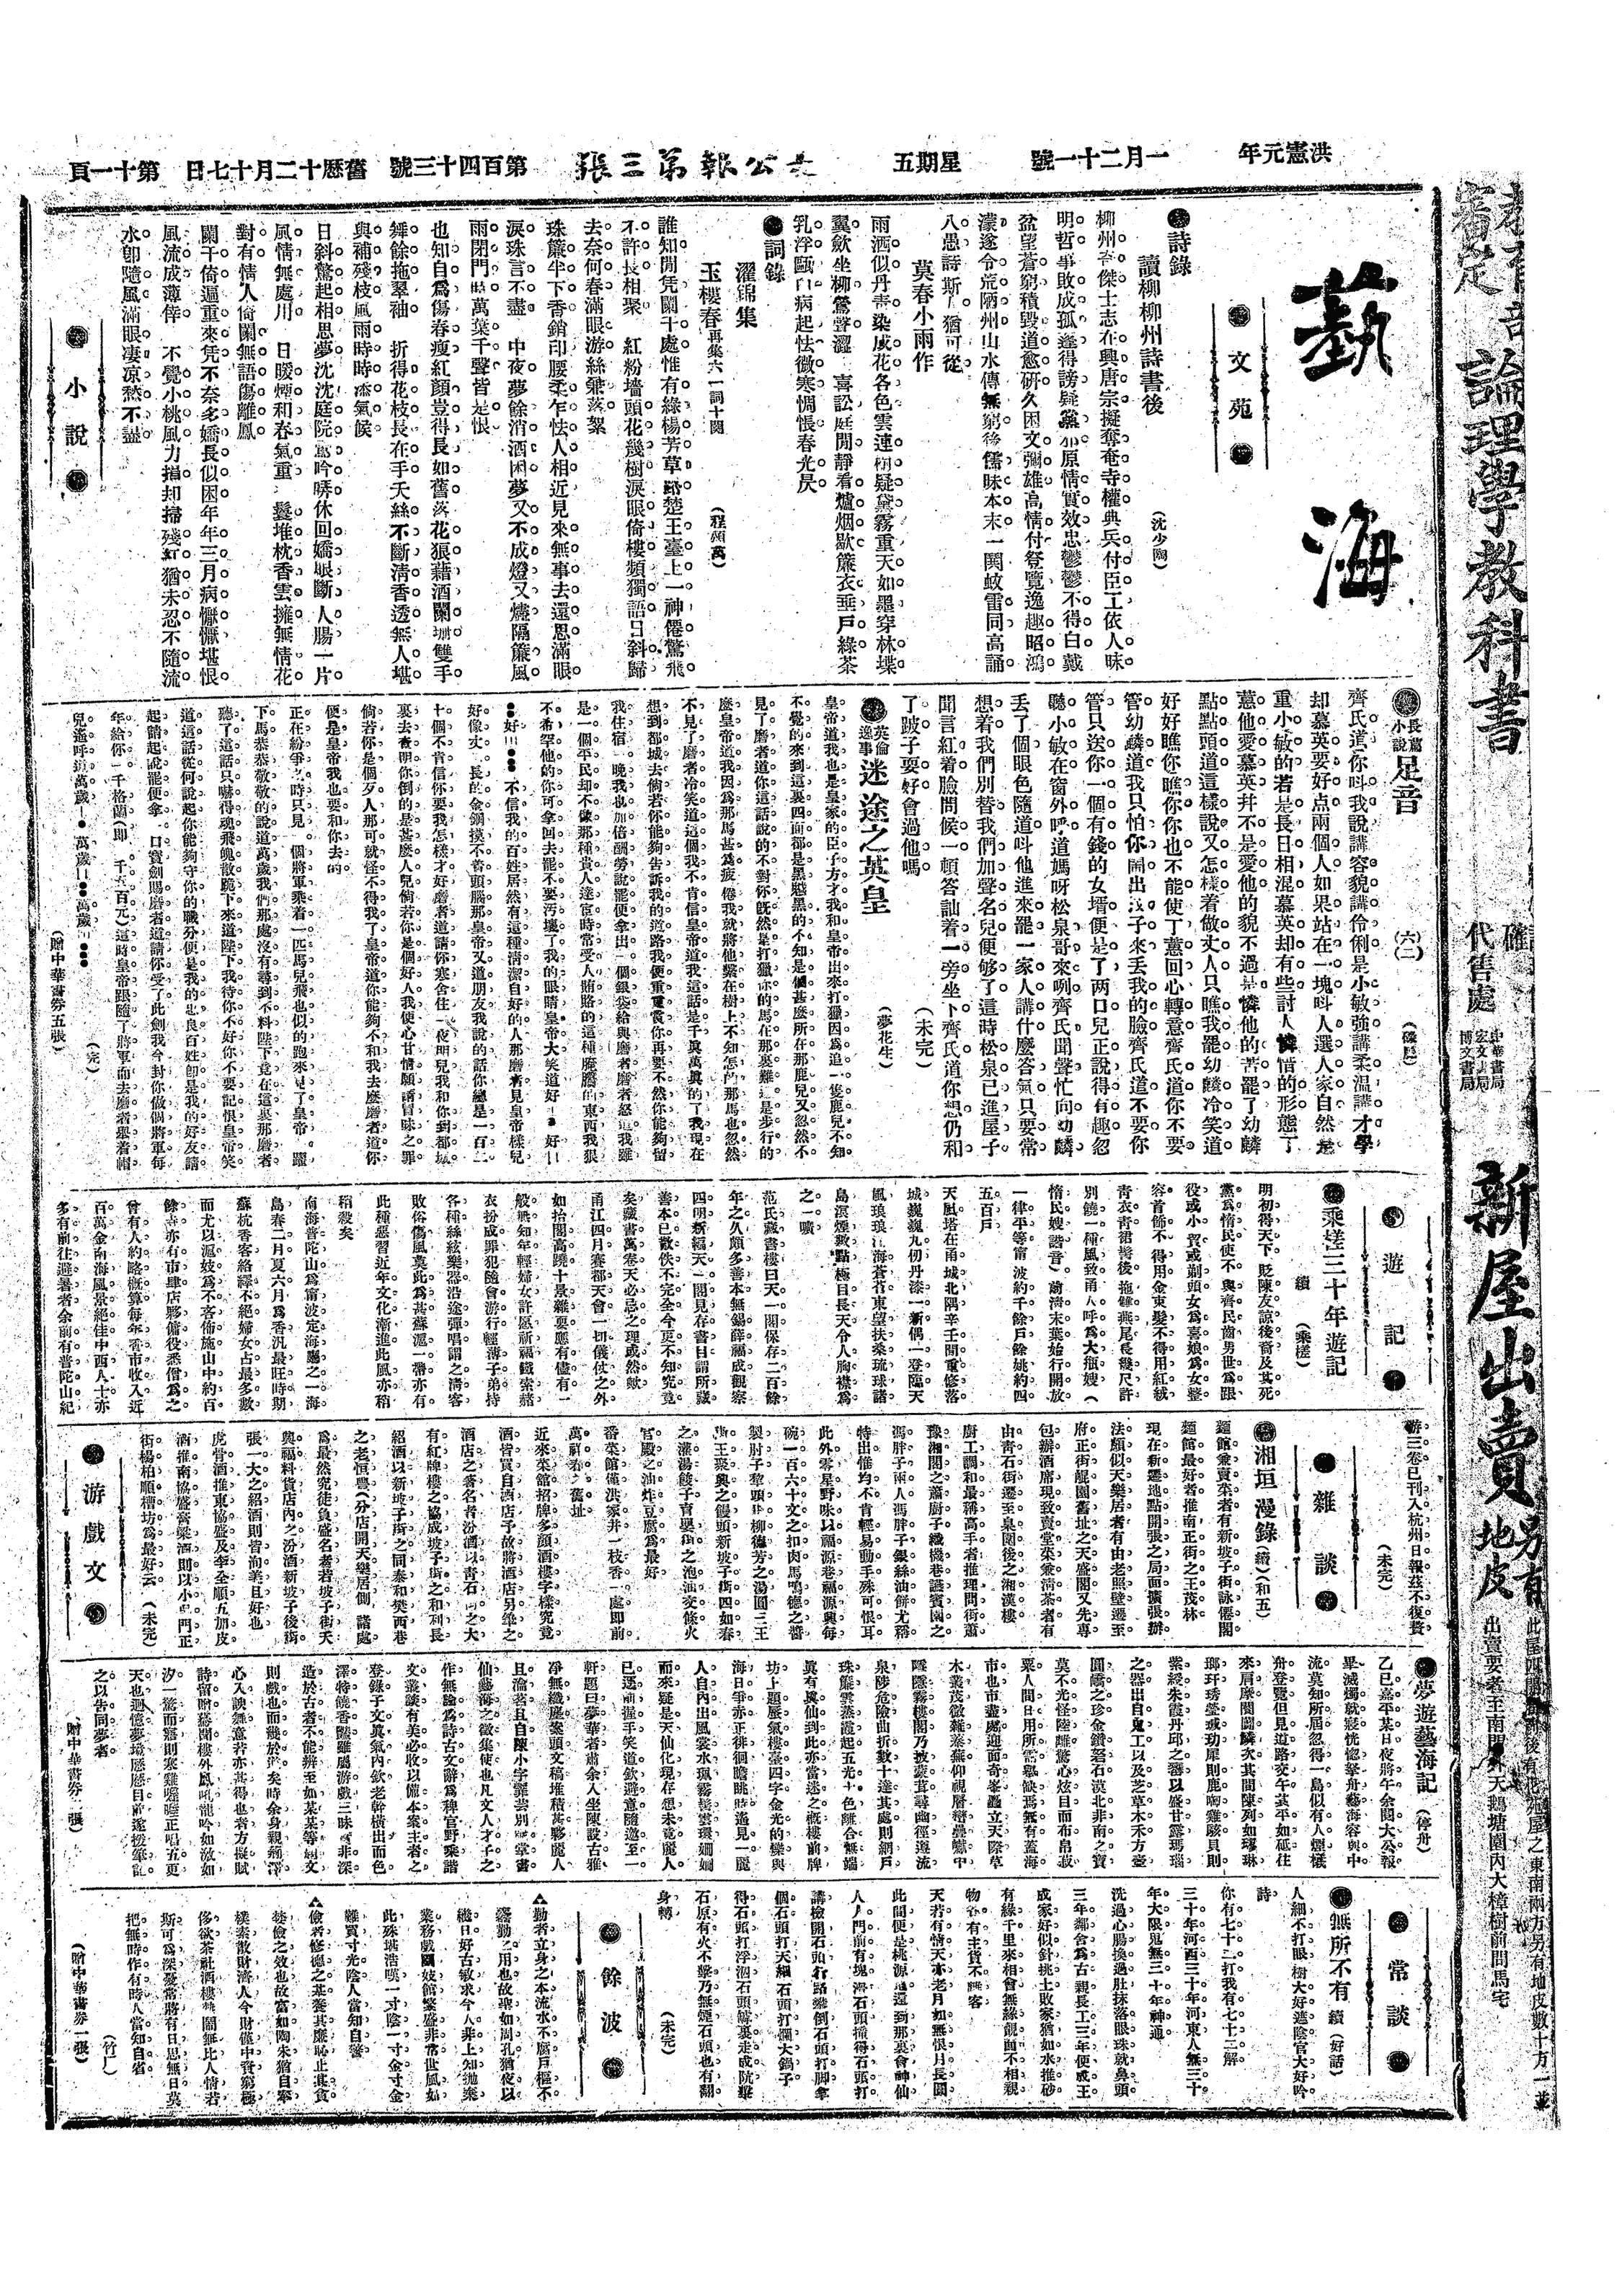 洪憲元年
一月二十一號
星期五
大公報第三張
第百四十三號
舊曆十二月十七日
第十一頁
藝海
文苑
詩錄
讀柳柳州詩書後
（沈少陶）
柳州吾傑士志在興唐宗擬奪奄寺權典兵付臣工依人昧
明哲事敗成孤蓬得謗疑原情實效忠鬱鬱不得白戴
盆望蒼窮積毀道愈研久困文彌雄高情付登覽逸趣昭鴻
濛遂令荒陋州山水傳無窮後儒昧本末一閧蚊雷同高誦
八愚詩斯人猶可從
莫春小雨作
雨洒似丹靑染成花各色雲連樹疑黛霧重天如墨穿林堞
翼歛坐柳鶯聲澀喜訟庭閒靜看爐烟歇簾衣垂戶綠茶
乳浮甌白病起怯微寒惆悵春光昃
詞錄
濯錦集
玉樓春再集六一詞十闋
誰知閒凭闌干處惟有綠楊芳草路楚王臺上一神倦驚飛
不許長相聚紅粉墻頭花幾樹淚眼倚樓頻獨語日斜歸
去奈何春滿眼游絲兼落絮
珠簾半下香銷印腰柔乍怯人相近見來無事去還思滿眼
淚珠言不盡中夜夢餘消酒困夢又不成燈又燼隔簾風
雨閉門時萬葉千聲皆是恨
也知自爲傷春瘦紅顏豈得長如舊落花狼藉酒闌珊雙手
舞餘拖翠袖折得花枝長在手天絲不斷淸香透無人堪
與補殘枝風雨時時添氣候
日斜驚起相思夢沈沈庭院鶯吟哢休回嬌眼斷人腸一片
風情無處用日暖煙和春氣重鬢堆枕香雲擁無情花
對有情人倚闌無語傷離鳳
闌干倚遍重來凭不奈多嬌長似困年年三月病懨懨堪恨
風流成薄倖不覺小桃風力損却掃殘紅猶未忍不隨流
水卽隨風滿眼凄凉愁不盡
小說
長篇小說
足音
（六二）
齊氏道你呌我說講容貌講伶俐是小敏強講柔溫講才學
却慕英要好点兩個人如果站在一塊呌人選人家自然是
重小敏的若是長日相混慕英却有些討人憐惜的形態了
蕙他愛慕英幷不是愛他的貌不過是憐他的苦罷了幼麟
點點頭道這樣說又怎樣着做丈人只瞧我罷幼麟冷笑道
好好瞧你瞧你你也不能使丁蕙回心轉意齊氏道你不要
管幼麟道我只怕你閙出法子來丢我的臉齊氏道不要你
管只送你一個有錢的女壻便是了兩口兒正說得有趣忽
聽小敏在窗外呼道媽呀松泉哥來咧齊氏聞聲忙向幼麟
丢了個眼色隨道呌他進來罷一家人講什麼答氣只要常
想着我們別替我們加聲名兒便够了這時松泉已進屋子
聞言紅着臉問候一頓答訕着一旁坐下齊氏道你想仍和
了跛子耍好會過他嗎
（未完）
英倫逸事
迷途之英皇
（夢花生）
皇帝道我也是皇家的臣子方才我和皇帝出來打獵因爲追一隻鹿兒不知
不覺的來到這裏四面都是黑越黑的不知是個甚麼所在那鹿兒又忽然不
見了磨者道你這話說的不對你旣然是打獵你的馬在那裏難道是步行的
麼皇帝道我因爲那馬甚爲疲倦我就將他繫在樹上不知怎的那馬也忽然
不見了磨者冷笑道這個我不肯信皇帝道我這話是千眞萬眞的了我現在
想到都城去倘若你能夠告訴我的道路我便重重賞你再要不然你能夠留
我住宿一晚我也加倍酬勞說罷便拿出一個銀袋給與磨者磨者怒道我雖
是一個平民却不像那種貴人達官時常受人賄賂的這種齷齪的東西我狠
不希罕他的你可拿回去罷不要汚壞了我的眼睛皇帝大笑道好
好不信我的百姓居然有這種淸潔自好的人那磨者見皇帝樣兒
好像丈長的金鋼摸不着頭腦那皇帝又道朋友我說的話你總是一百二
十個不肯信你要我怎樣才好磨者道請你寒舍住一夜明兒我和你到都城
裏去查明你倒的是甚麼人兒倘若你是個好人我便心甘情願請冒昧之罪
倘若你是個歹人那可就怪不得我了皇帝道你能夠不和我去麼磨者道你
便是皇帝我也要和你去的
正在紛爭之時只見一個將軍乘着一匹馬兒飛也似的跑來見了皇帝躍
下馬恭恭敬敬的說道萬歲我們那處沒有尋到不料陛下竟在這裏那磨者
聽了這話只嚇得魂飛魄散跪下來道陛下我待你不好你不要記恨皇帝笑
道這話從何說起你能夠守你的職分便是我的忠良百姓卽是我的好友請
起請起說罷便拿一口寶劍賜磨者道請你受了此劍我今封你做個將軍每
年給你一千格蘭（即一千五百元）這時皇帝跟隨了將軍而去磨者舉着帽
兒遙呼道萬歲萬歲萬歲
（完）
（贈中華書券五張）
遊記
乘槎三十年遊記
續
（乘槎）
明初得天下貶陳友諒後裔及其死
黨爲惰民使不與齊民齒男世爲跟
役或小貿或剃頭女爲喜娘爲女整
容首飾不得用金束髮不得用紅絨
靑衣靑裙髻後拖錐燕尾長幾尺許
別饒一種風致甬人呼爲大瓶嫂（
惰民嫂諧音）前淸末葉始行開放
一律平等甯波約千餘戶餘姚約四
五百戶
天風塔在甬城北隅辛壬間重修落
城巍巍九初丹漆一新偶一登臨天
風琅琅江海蒼蒼東望扶桑琉球諸
島溟煙數點極目長天令人胸襟爲
之一曠
范氏藏書樓曰天一閣保存二百餘
年之久頗多善本無錫薛福成觀察
四明新輯天一閣見存書目謂所藏
善本已散佚不完全今更不知究竟
矣藏書萬卷天必忌之理或然歟
甬江四月賽都天會一切儀仗之外
如抬閣高蹺十景雜耍應有儘有一
般無知年輕婦女許愿祈福鐵索赭
衣扮成罪犯隨會游行輕薄子弟持
各種絲絃樂器沿途彈唱謂之淸客
敗俗傷風莫此爲甚蘇滬一帶亦有
此種惡習近年文化漸進此風亦稍
稍殺矣
南海普陀山爲甯波定海屬之一海
島春二月夏六月爲香汛最旺時期
蘇杭香客絡繹不絕婦女占最多數
而尤以滬妓爲不吝佈施山中約百
餘寺亦有市肆店夥傭役悉僧爲之
曾有人約略槪算每年香市收入近
百萬金附海風景絕佳中西人士亦
多有前往避暑者余前有普陀山紀
游三卷已刊入杭州日報茲不復贅
（未完）
雜談
湘垣漫錄
（續）（和五）
麵館兼賣菜者有新坡子街詠僊閣
麵館最好者推南正街之王茂林
現在新遷地點開張之局面擴張辦
法頗似天樂居者有由老照壁遷至
府正街龍園舊址之天盛閣又先專
包辦酒席現致賣堂菜兼淸茶者有
由靑石街遷至臬閣後之湘漢樓
廚工調和最稱高手者推理問街蕭
豫湘閣之蕭廚子織機巷讌賓園之
馮胖子兩人馮胖子銀絲油餅尤稱
特出惟均不肯輕易動手殊可恨耳
此外零星野味以福源巷福源興每
碗一百六十文之扣肉馬鳴德之醬
製肘子犂頭街柳德芳之湯圓三王
街王聚興之饅頭新坡子街四如春
之灌湯餃子育嬰街之泡油交條火
官殿之油炸豆腐爲最好
番菜館僅洪家井一枝香一處即前
萬祥春之舊址
近來菜舘招牌多顏酒樓字樣究竟
酒皆買自酒店予故將酒店另錄之
酒店之著名者汾酒以靑石街之大
有紅牌樓之協成坡子街之和利長
紹酒以新坡子街之同泰和樊西巷
之老恒豐（分店開天樂居側諸處
爲最然究徒負盛名者若坡子街天
與福料貨店內之汾酒新坡子後街
張一大之紹酒則皆洵美且好也
虎骨酒推東協盛及李全順五加皮
酒推南協盛高粱酒則以小西門正
街楊柏順槽坊爲最好云
（未完）
游戲文
夢遊藝海記
（停舟）
乙巳嘉平某日夜將午余閱大公報
畢滅燭就寢恍惚拏舟藝海容與中
流莫知所屆忽得一島似有人煙檥
舟登覽但見道路交午其平如砥往
來肩摩闤闠鱗次其間陳列如璆琳
瑯玕琇瑩瑊玏犀則鹿㕮雞駭貝則
紫綬朱霞丹邱之甖以盛甘露瑪瑙
之器出自鬼工以及芝草木禾方壺
圓嶠之珍金鑽砮石漠北非南之寶
莫不光怪陸離驚心炫目而布帛菽
粟人間日用所需舉缺焉無有蓋海
市也市盡處迎面奇峯矗立天際草
木叢茂微雜蓁蕪仰視層巒疊巘中
隱隱露樓閣乃披叢茸尋幽徑邊流
泉涉危險曲折數十達其處則網戶
珠簾雲蒸霞起五光十色離合無端
眞有神仙到此亦當迷之槪樓前牌
坊上題蜃氣樓臺四字金光的皪與
海日爭赤正徘徊瞻眺時遙見一麗
人自內出風裳水珮霧髩雲環姍姍
而來疑是天仙化現存想未竟麗人
已迓面前握手笑道欽遲意隨邀至一
軒題曰夢華者肅余人坐陳設古雅
淨無纖塵案頭文稿堆積萬夥麗人
且淪茗且自陳小字霏芸別號掌書
仙藝海之徵集使也凡文人才子之
作無論爲詩古文辭爲稗官野乘諧
文叢談有美必收以備本案主者之
登錄子文眞氣內斂老幹橫出而色
深特饒香豔雖屬游戲三昧甚非深
造於古者不能辨至如某某等齣文
則戲也而幾於濫矣時余身親薌澤
心入諛無意若亦甚得也者方擬賦
詩留贈驀聞樓外鳳吼龍吟如波如
汐一驚而寤則寒雞喔喔正唱五更
天也迴憶夢境歷歷目前遂援筆記
之以告同夢者
（贈中華書券二張）
常談
無所不有
續（好話）
人細不打眼樹大好遮陰官大好吟
詩
你有七十二打我有七十二解
三十年河西三十年河東人無三十
年大限鬼無三十年神通
洗過心腸換過肚抹落眼珠就鼻頭
三年鄰舍爲古親長工三年便成王
成家好似針挑土敗家猶如水推砂
有緣千里來相會無緣覿面不相親
物各有主貨不壓客
天若有情天亦老月如無恨月長圓
此間便是桃源過還到那裏會神仙
人人門前有塊滑石頭撞得石頭打
講檢開石頭行路纔倒石頭打脚拿
個石頭打天緝石頭打爛大鍋子
得石頭打浮泅石頭縛裏走成院舉
石原有火不擊乃無煙石頭也有翻
身轉
（未完）
餘波
勤者立身之本流水不腐戶樞不
蠹勤之用也故聖如周孔猶夜以
繼日好古敏求今人非上知拋棄
業務戲園妓館繁盛非常世風如
此殊堪浩嘆一寸陰一寸金寸金
難買寸光陰人當知自警
儉者修德之基養其廉恥止其貪
婪儉之效也故富如陶朱猶自奉
樸素散財濟人今財儘中資窮極
侈欲茶社酒樓熱鬧無比人情若
斯可爲深憂常將有日思無日莫
把無時作有時人當知自省
（竹厂）
（贈中華書券一張）
教育部審定
論理學教科書
代售處
中華書局
宏文書局
博文書局
新屋出賣
另有地皮
出賣要者至南門外天鵝塘園內大樟樹前問馬宅